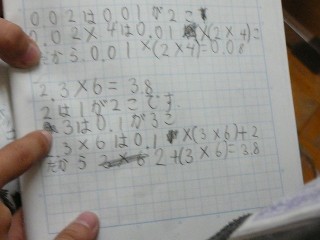 0.02は0.01が2こ
0.02×4は0.01×(2×4)=
だから0.01×(2×4)=0.08
2.3×6=3.8
2は1が2こです
3は0.1が3こ
3×6は0.1×(3×6)+2
だから 2+(3×6)=3.8